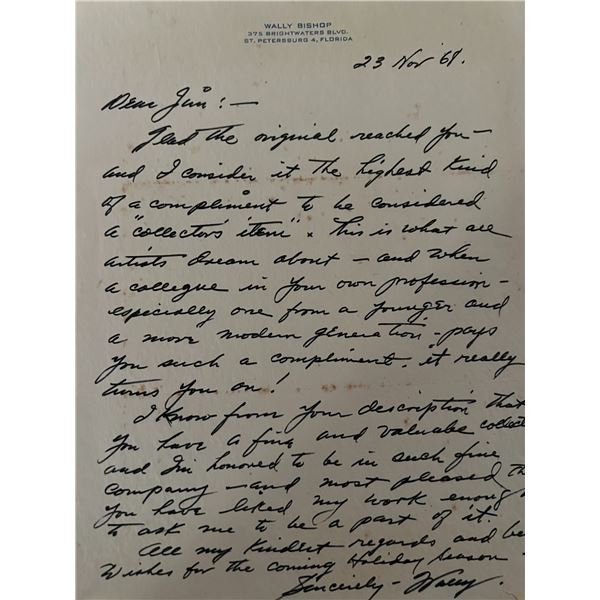 WALLY BISHOP
375 BRIGHTWATERS BLVD.
ST. PETERSBURG 4, FLORIDA
23 Nov '61.
Dear Jim: —
Glad the original reached you —
and I consider it the highest kind
of a compliment to be considered
a "collectors item". This is what all
artists dream about — and when
a collegue in your own profession —
especially one from a younger and
a more modern generation — pays
you such a compliment, it really
turns you on!
I know from your description that
you have a fine and valuable collect
and I'm honored to be in such fine
company — and most pleased th
you have liked my work enoug
to ask me to be a part of it.
All my kindest regards and be
wishes for the coming Holiday Season —
Sincerely — Wally.